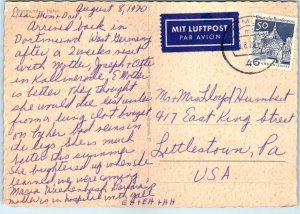 August 8, 1970
Dear Mom & Dad,
Arrived back in
Dortmund West Germany
after a 2 weeks visit
with Mother, Joseph & Otto
in Kallinerode, S Mother
is better. They thought
she would die last winter
from a lung clot brought
on by her bad veins in
the legs. She is much
better this summer.
She brightened up when she
learned we were coming.
Maria Wiedenbusch, Bernard's
mother is in hospital with gall
MIT LUFTPOST
PAR AVION
50
46
Mr & Mrs Lloyd Humbert
417 East King Street
Littlestown, Pa
USA